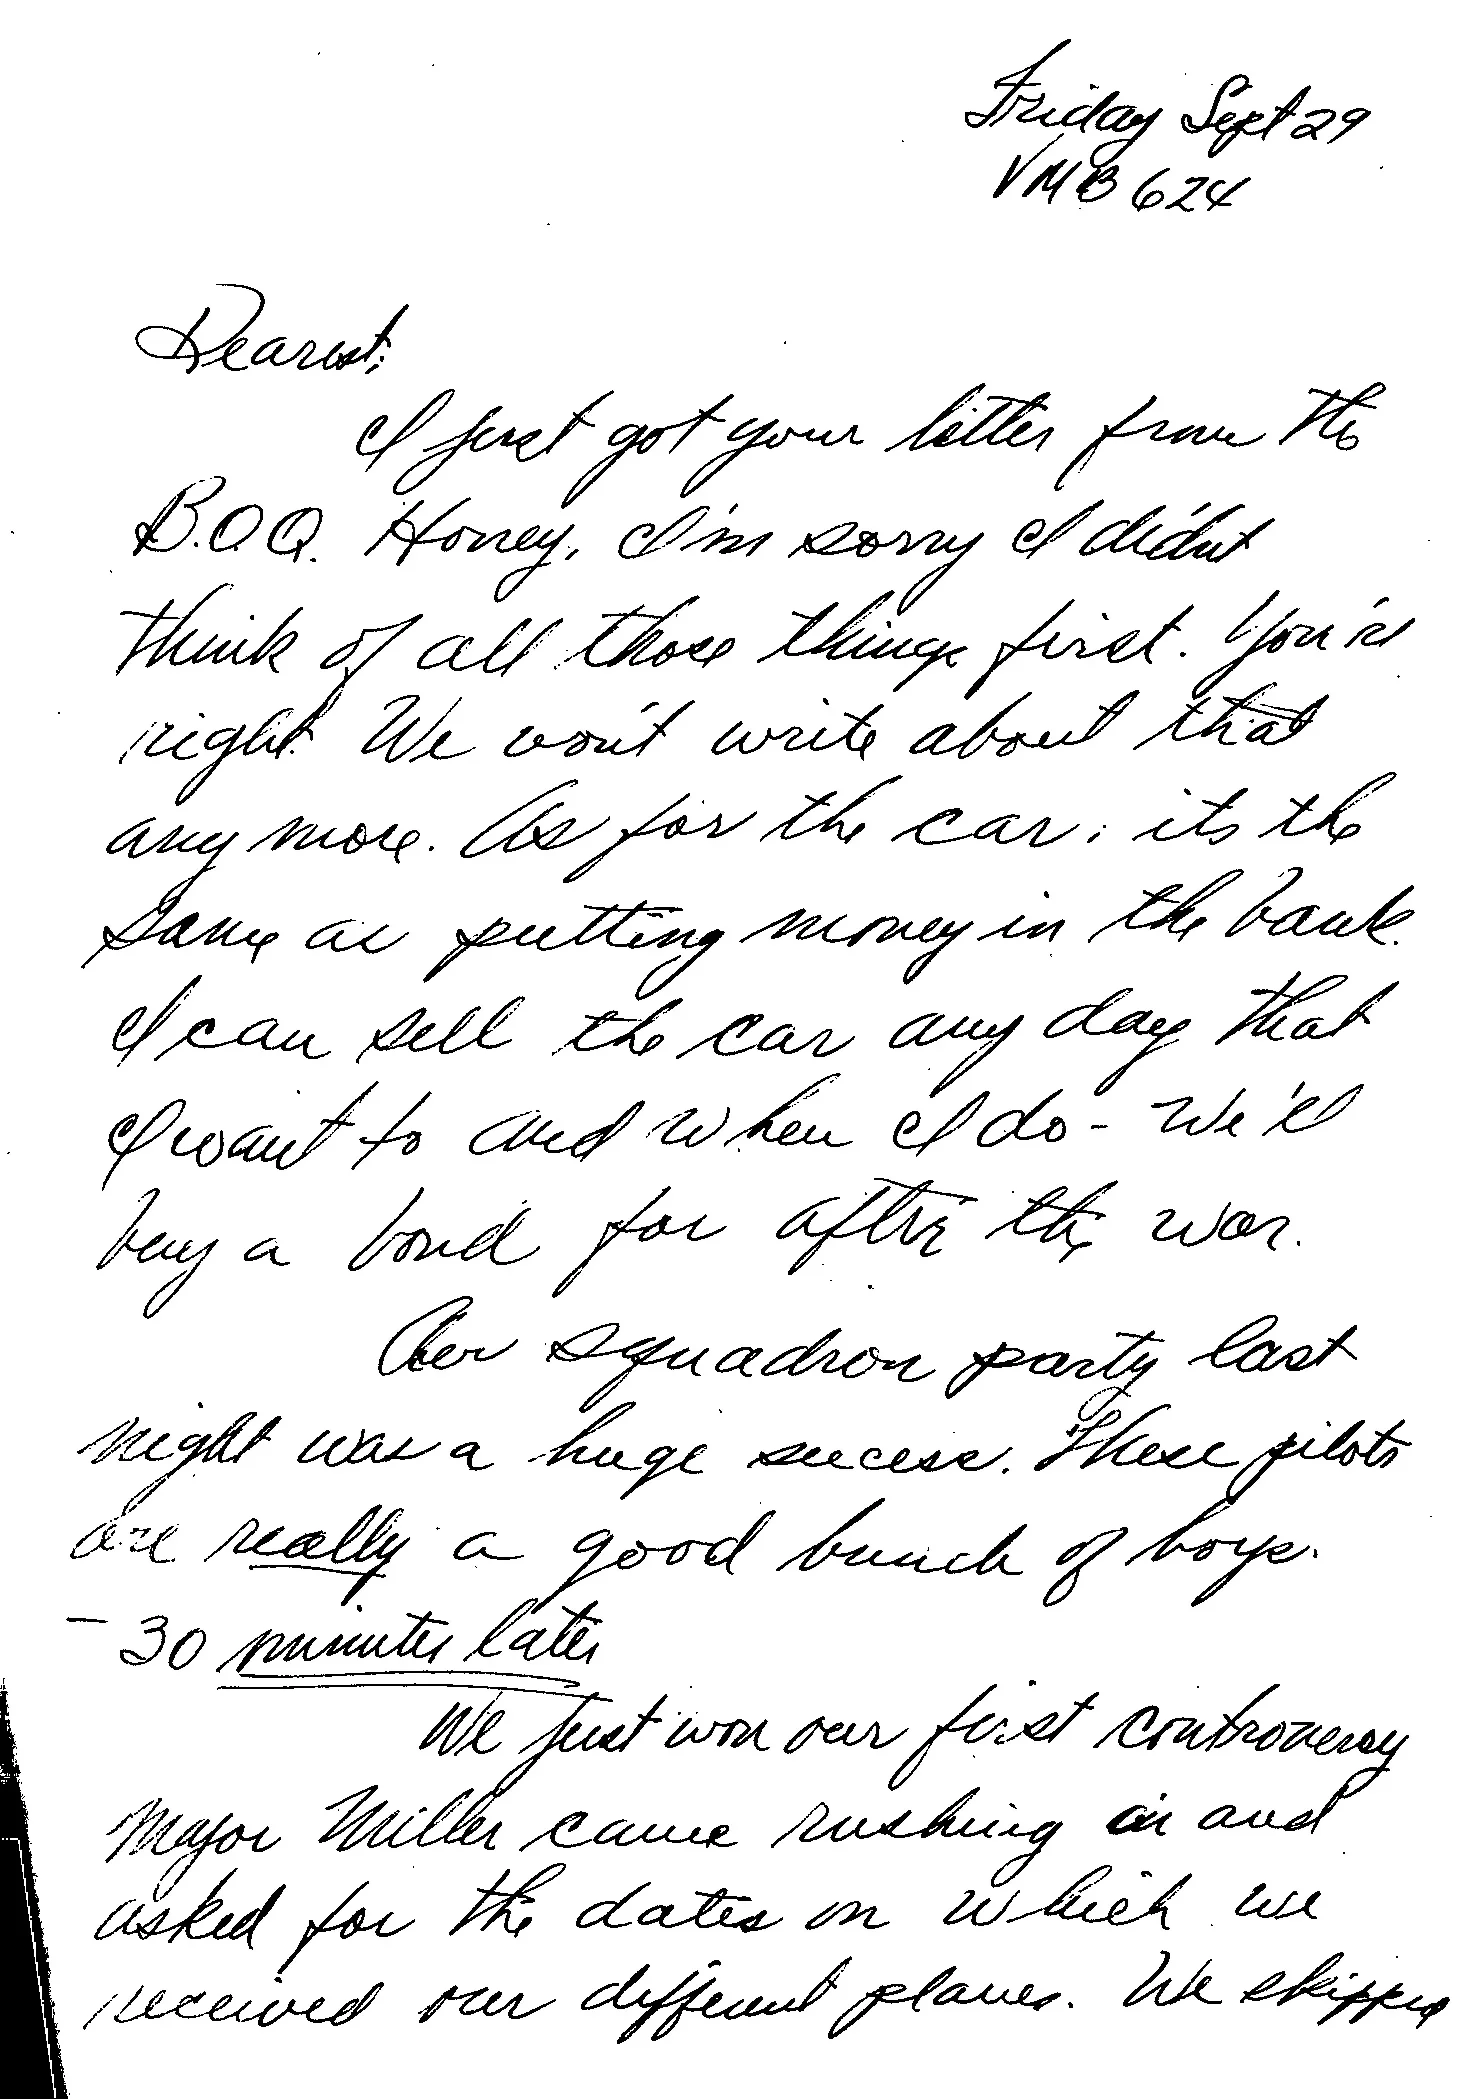 Friday Sept 29
VMB 624
Dearest;
I just got your letter from the
B.O.Q. Honey, I'm sorry I didn't
think of all those things first. You're
right. We won't write about that
any more. As for the car; its the
same as putting money in the bank.
I can sell the car any day that
I want to and when I do - we'll
buy a bond for after the war.
Our squadron party last
night was a huge success. These pilots
are really a good bunch of boys.
- 30 minutes later
We just won our first controversy
Major Miller came rushing in and
asked for the dates on which we
received our different planes. We skipped